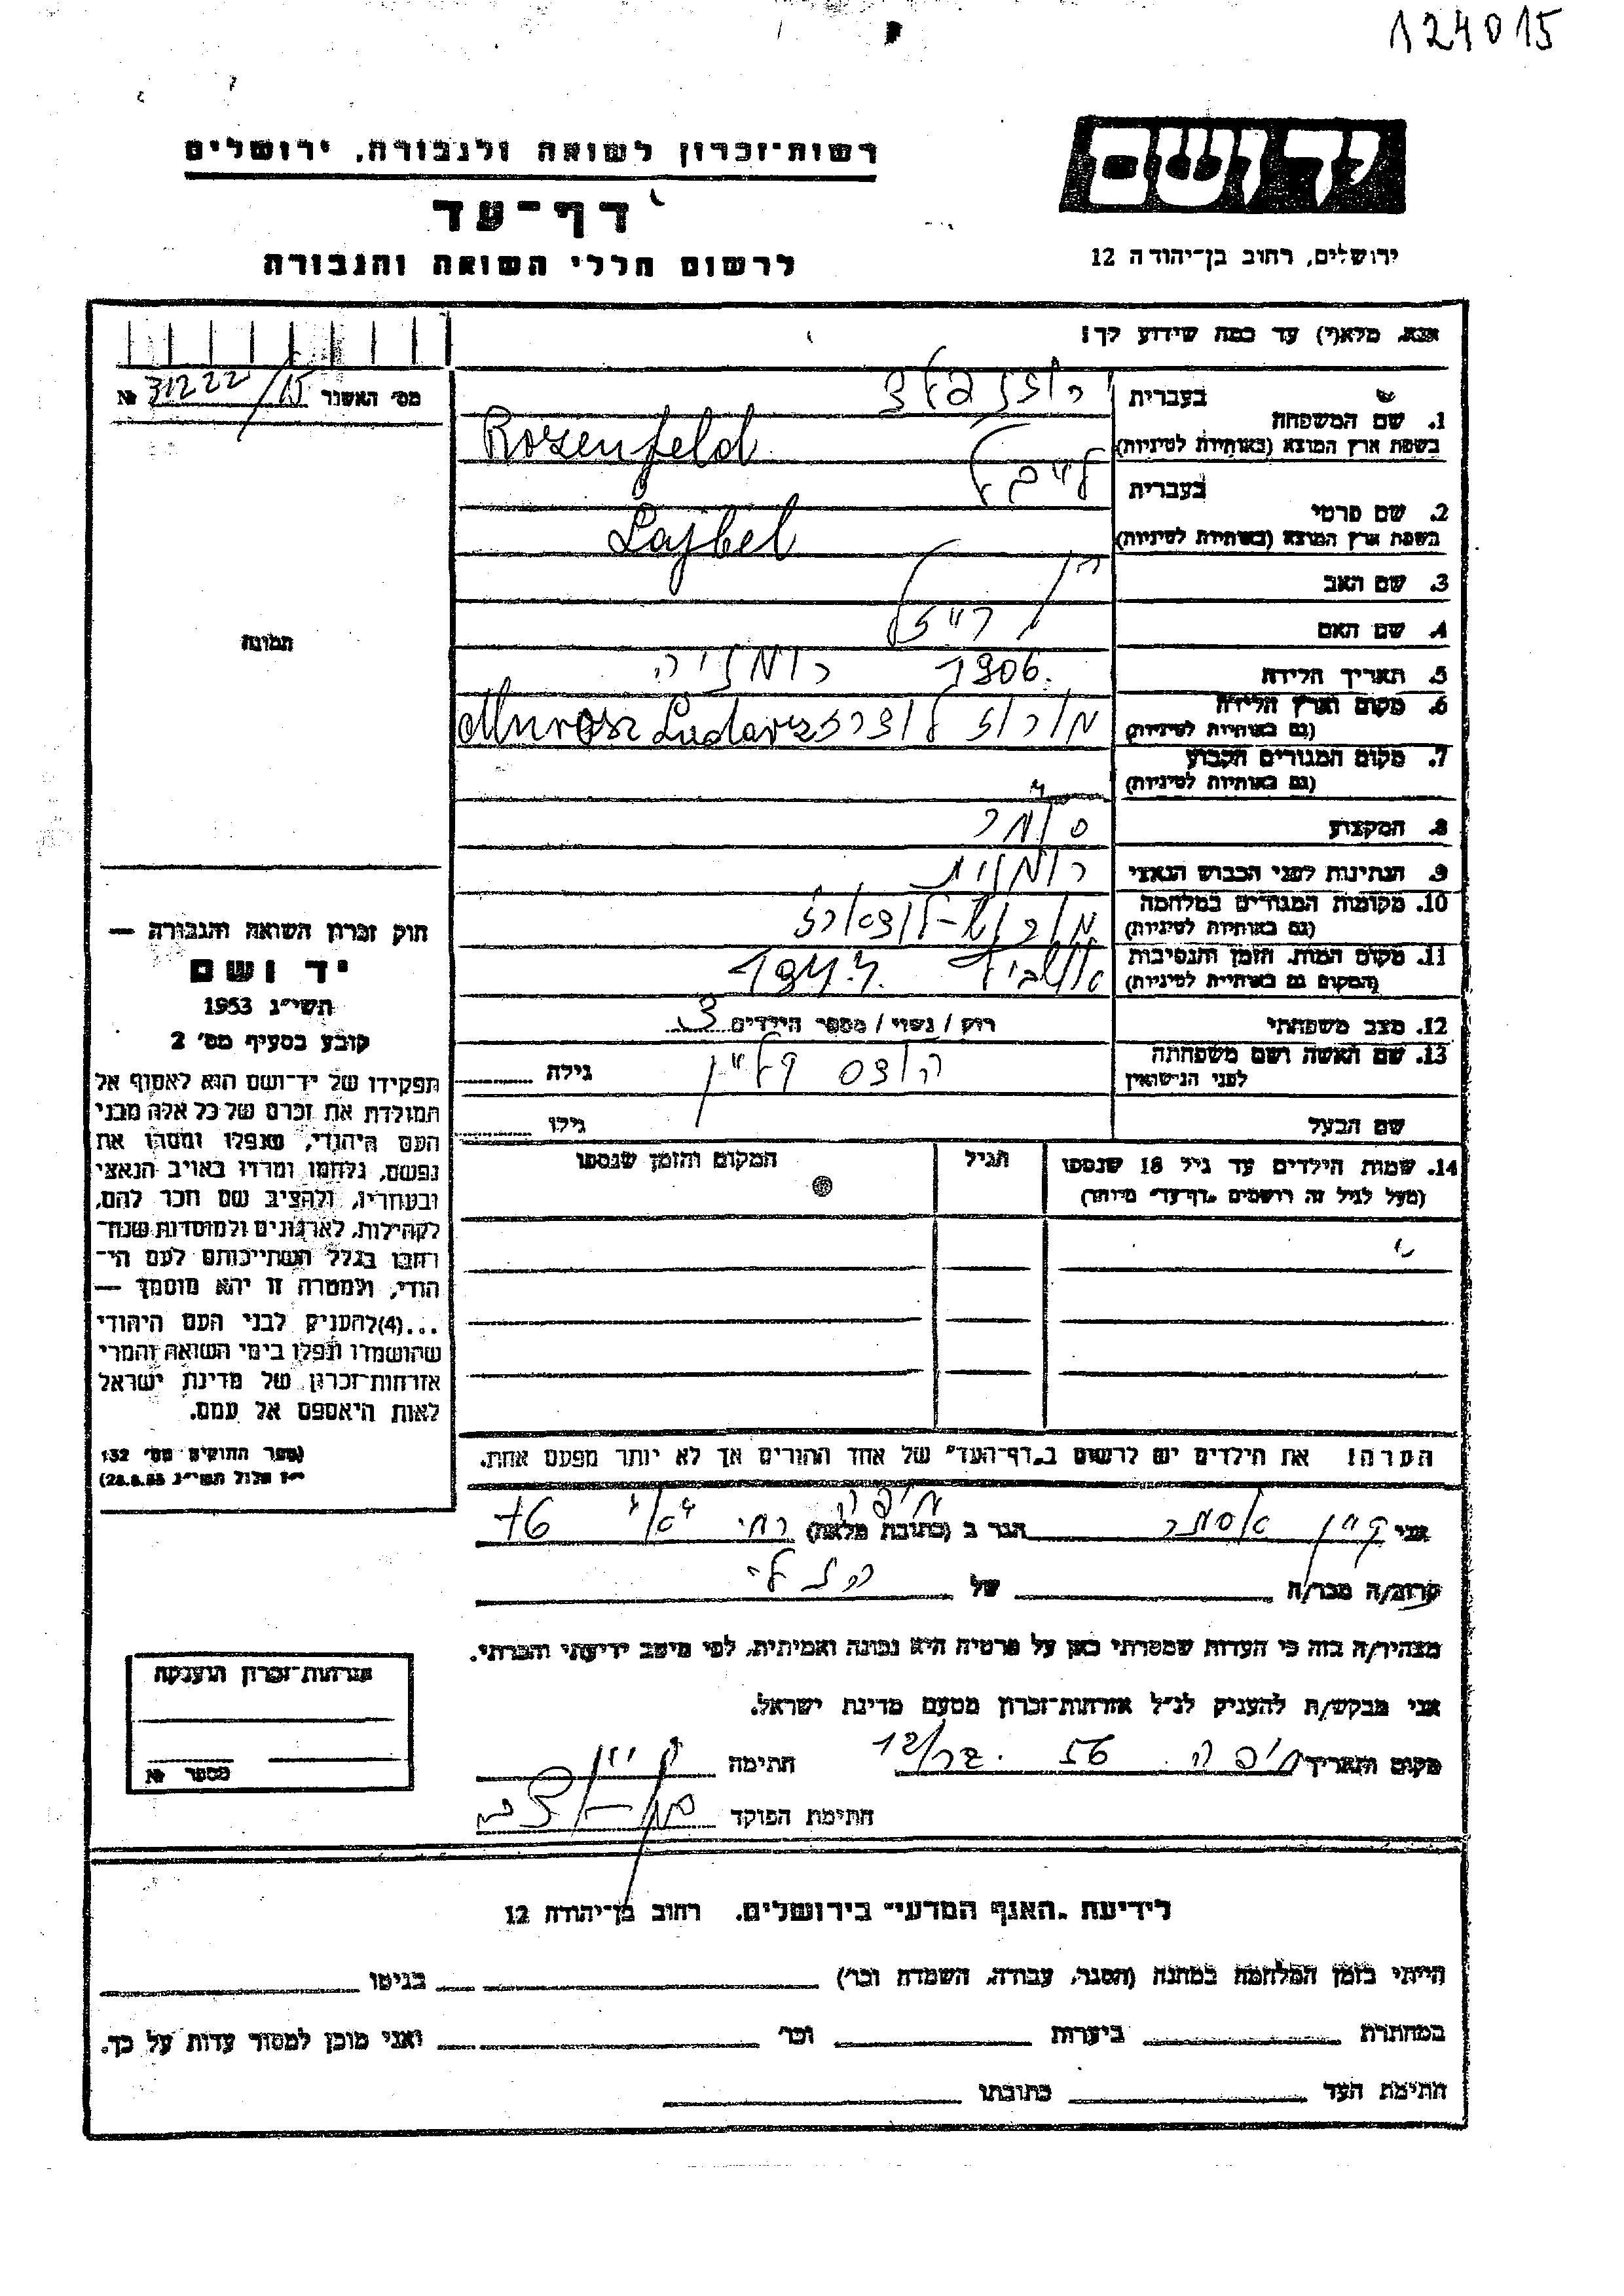 124015
יד ושם
רשות־זכרון לשואה ולגבורה, ירושלים
דף־עד
לרשום חללי השואה והגבורה
ירושלים, רחוב בן־יהודה 12
אנא, מלא(י) עד כמה שידוע לך!
מס׳ האשנר 31222/15 №
בעברית רוזנפלד
1. שם המשפחה
בשפת ארץ המוצא (באותיות לטיניות) Rozenfeld
בעברית לייבל
2. שם פרטי
בשפת ארץ המוצא (באותיות לטיניות) Lajbel
3. שם האב
4. שם האם רייזל
5. תאריך הלידה 1906. רומניה
6. מקום וארץ הלידה
(גם באותיות לטיניות) מורוש לודורש Murosz Ludarsz
7. מקום המגורים הקבוע
(גם באותיות לטיניות)
8. המקצוע סוחר
9. הנתינות לפני הכבוש הנאצי רומנית
10. מקומות המגורים במלחמה
(גם באותיות לטיניות) מורוש-לודורש
11. מקום המות, הזמן והנסיבות
(המקום גם באותיות לטיניות) אושביץ 1944.
12. מצב משפחתי רוק / נשוי / מספר הילדים 3
13. שם האשה ושם משפחתה
לפני הנישואין הדס קליין גילה
שם הבעל גילו
תמונה
14. שמות הילדים עד גיל 18 שנספו
(מעל לגיל זה רושמים „דף־עד״ מיוחד)
הגיל
המקום והזמן שנספו
חוק זכרון השואה והגבורה —
יד ושם
תשי״ג 1953
קובע בסעיף מס׳ 2
תפקידו של יד־ושם הוא לאסוף אל
המולדת את זכרם של כל אלה מבני
העם היהודי, שנפלו ומסרו את
נפשם, נלחמו ומרדו באויב הנאצי
ובעוזריו, ולהציב שם וזכר להם,
לקהילות, לארגונים ולמוסדות שנח־
רחבו בגלל השתייכותם לעם הי־
הודי, ולמטרה זו יהא מוסמך —
...(4)להעניק לבני העם היהודי
שהושמדו ונפלו בימי השואה והמרי
אזרחות־זכרון של מדינת ישראל
לאות היאספם אל עמם.
(ספר החוקים מס׳ 132
י״ז אלול תשי״ג 28.8.53)
הערה! את הילדים יש לרשום ב„דף־העד״ של אחד ההורים אך לא יותר מפעם אחת.
אני קליין אסתר הגר ב (כתובת מלאה) חיפה רח׳ 76
קרוב/ה מכר/ה של
מצהיר/ה בזה כי העדות שמסרתי כאן על פרטיה היא נכונה ואמיתית, לפי מיטב ידיעתי והכרתי.
אני מבקש/ת להעניק לנ״ל אזרחות־זכרון מטעם מדינת ישראל.
מקום ותאריך חיפה. 56 חתימה קליין
חתימת הפוקד
אזרחות־זכרון הוענקה
מספר №
לידיעת „האגף המדעי״ בירושלים, רחוב בן־יהודה 12
הייתי בזמן המלחמה במחנה (הסגר, עבודה, השמדה וכו׳) בגיטו
במחתרת ביערות וכו׳ ואני מוכן למסור עדות על כך.
חתימת העד כתובתו